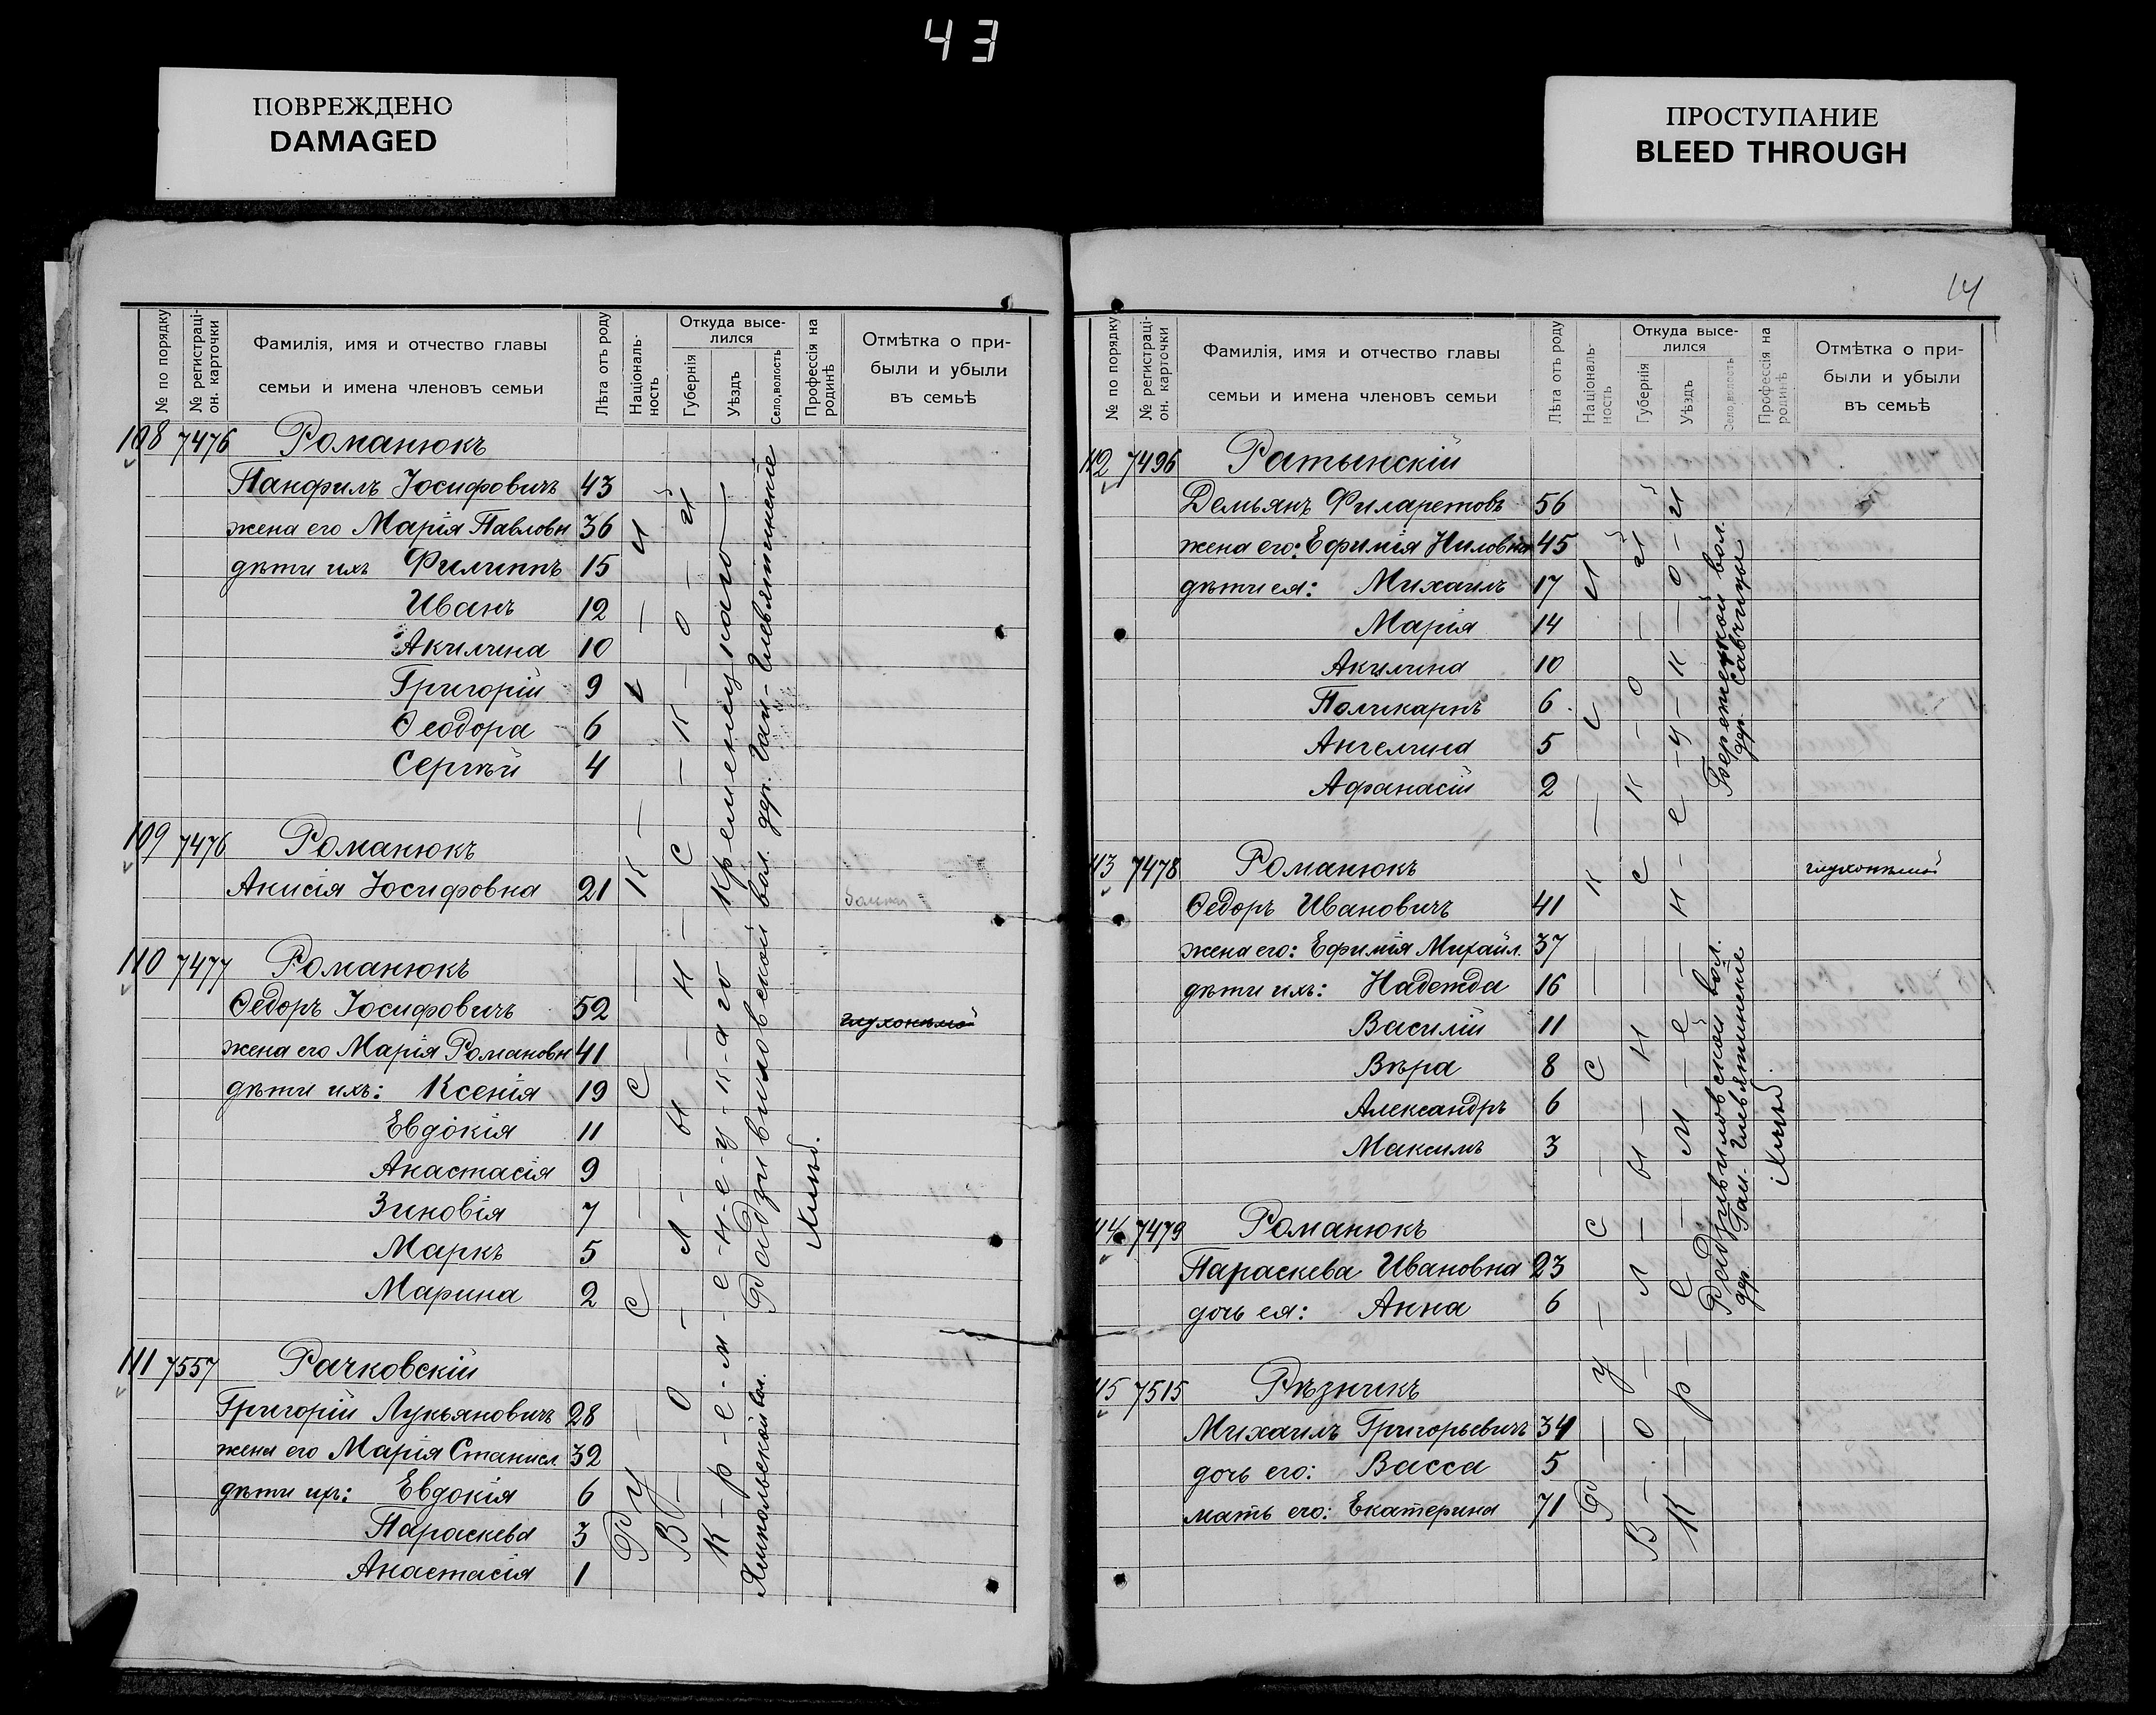 43
ПОВРЕЖДЕНО
DAMAGED
ПРОСТУПАНИЕ
BLEED THROUGH
№ по порядку
№ регистраціон. карточки
Фамилія, имя и отчество главы
семьи и имена членовъ семьи
Лѣта отъ роду
Національность
Откуда выселился
Губернія
Уѣздъ
Село, волость
Профессія на родинѣ
Отмѣтка о прибыли и убыли въ семьѣ
108 7476 Романюкъ
Панфилъ Іосифовичъ 43
жена его Марія Павловн 36
дѣти ихъ Филиппъ 15
Иванъ 12
Акилина 10
Григорій 9
Ѳеодора 6
Сергѣй 4
109 7476 Романюкъ
Анисія Іосифовна 21
110 7477 Романюкъ
Ѳедоръ Іосифовичъ 52 глухонѣмой
жена его Марія Романовн 41
дѣти ихъ: Ксенія 19
Евдокія 11
Анастасія 9
Зиновія 7
Маркъ 5
Марина 2
111 7557 Рачковскій
Григорій Лукьяновичъ 28
жена его Марія Станисл. 32
дѣти ихъ: Евдокія 6
Параскева 3
Анастасія 1
Русскій
Волынской
Кременецкаго
Кременецкаго
Радзивиловской вол. дер.
Хлѣб.
14
№ по порядку
№ регистраціон. карточки
Фамилія, имя и отчество главы
семьи и имена членовъ семьи
Лѣта отъ роду
Національность
Откуда выселился
Губернія
Уѣздъ
Село, волость
Профессія на родинѣ
Отмѣтка о прибыли и убыли въ семьѣ
112 7496 Ратынскій
Демьянъ Филаретовъ 56
жена его: Ефимія Ниловна 45
дѣти ея: Михаилъ 17
Марія 14
Акилина 10
Поликарпъ 6
Ангелина 5
Афанасій 2
113 7478 Романюкъ глухонѣмой
Ѳедоръ Ивановичъ 41
жена его: Ефимія Михайл. 37
дѣти ихъ: Надежда 16
Василій 11
Вѣра 8
Александръ 6
Максимъ 3
114 7479 Романюкъ
Параскева Ивановна 23
дочь ея: Анна 6
115 7515 Рѣзникъ
Михаилъ Григорьевичъ 34
дочь его: Васса 5
мать его: Екатерина 71
Русскій
Волынской
Кременец
Берестецкой вол.
дер. Савчицы
Радзивиловской вол.
дер.
Хлѣб.